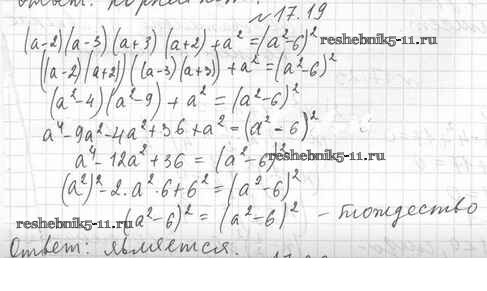 №17.19
(a-2)(a-3)(a+3)(a+2)+a²=(a²-6)²
reshebnik5-11.ru
((a-2)(a+2))((a-3)(a+3))+a²=(a²-6)²
(a²-4)(a²-9)+a²=(a²-6)²
a⁴-9a²-4a²+36+a²=(a²-6)²
a⁴-12a²+36=(a²-6)²
reshebnik5-11.ru
(a²)²-2·a²·6+6²=(a²-6)²
reshebnik5-11.ru
(a²-6)²=(a²-6)² - тождество
Ответ: является.